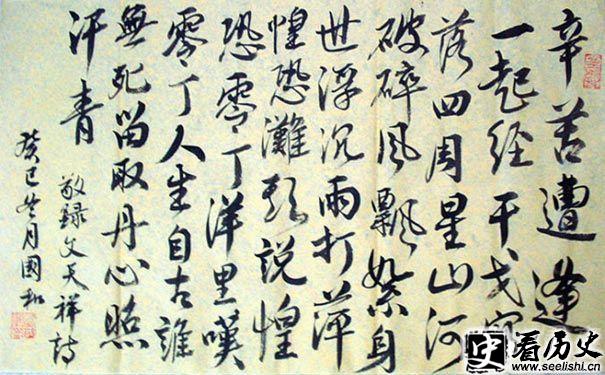 辛苦遭逢
一起经干戈寥
落四周星山河
破碎风飄絮身
世浮沉雨打萍
惶恐灘头说惶
恐零丁洋里嘆
零丁人生自古誰
無死留取丹心照
汗青
敬録文天祥诗
癸巳月國和
看历史
www.seelishi.cn